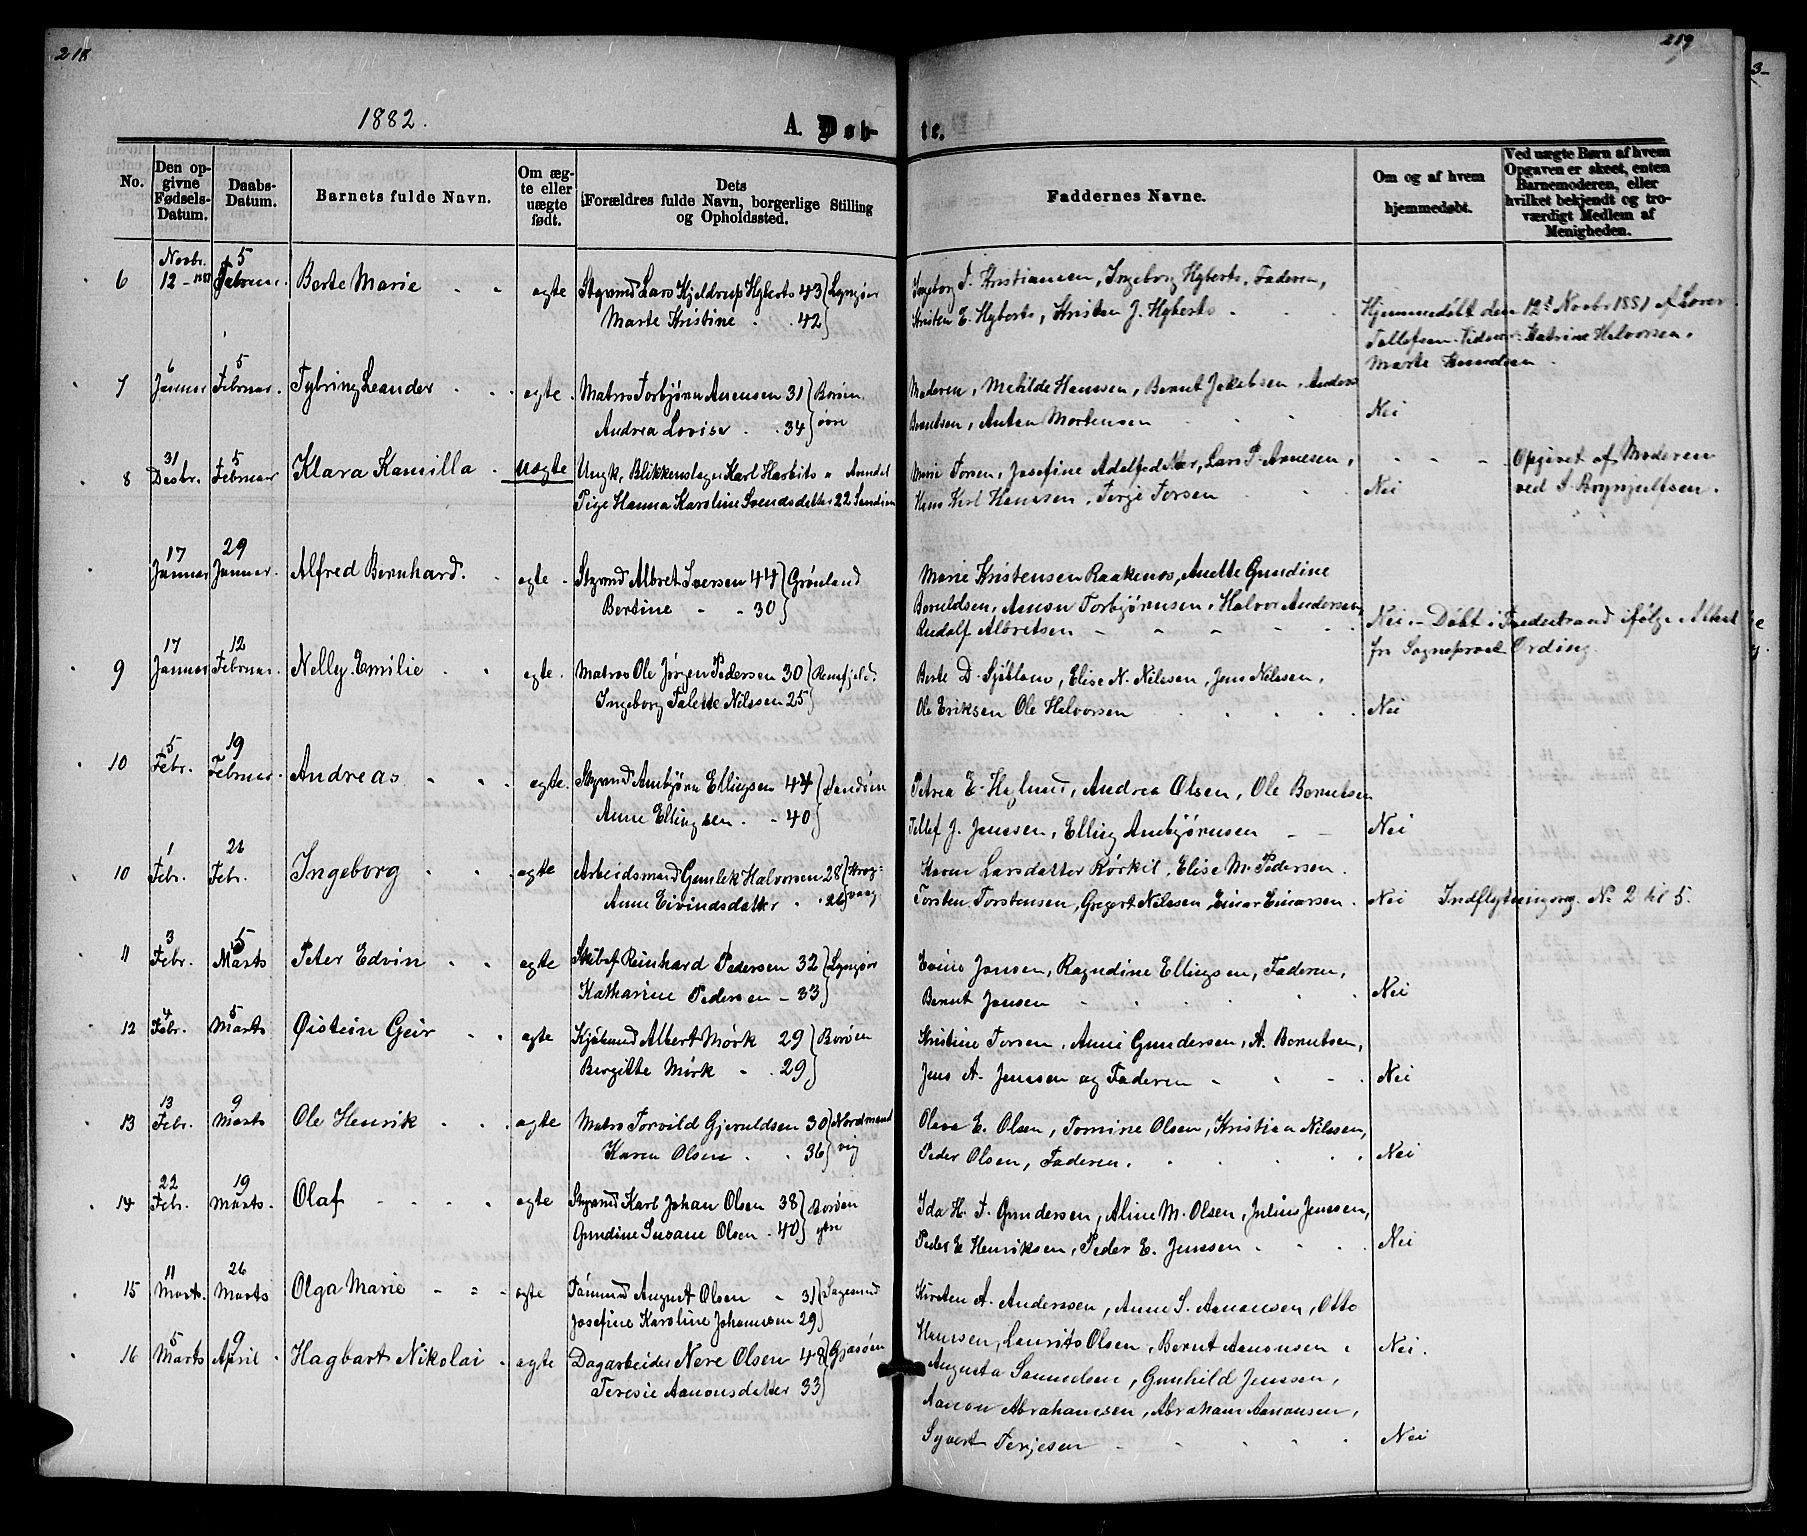 218
219
1882.
A. Døb-
te.
No.
Den op-
givne
Fødsels-
Datum.
Daabs-
Datum.
Barnets fulde Navn.
Om æg-
te eller
uægte
født.
Dets
Forældres fulde Navn, borgerlige Stilling
og Opholdssted.
Faddernes Navne.
Om og af hvem
hjemmedøbt.
Ved uægte Børn af hvem
Opgaven er skeet, enten
Barnemoderen, eller
hvilket bekjendt og tro-
værdigt Medlem af
Menigheden.
Novbr. 5
6 12 - Februar. Berte Marie " " ægte Styrmd Lars Kjeldrup Hgberts 43 Lyngør
Marte Kristine " . 42
Ingeborg T. Kristiansen, Ingeborg Hgberts, Faderen,
Kristen E. Hgberts, Kristen J. Hgberts
Hjemmedøbt den 12te Novbr 1881 af Lovis
Tallefsen. Vidner: Katrine Halvorsen,
Marte Knudsen.
6 5
7 Januar Februar. Tybring Leander ægte. Matros Torbjørn Anensen 31 Borøen
Andrea Lovise . . 34 øvre
Moderen, Metilde Hanssen, Bernt Jakobsen, Anders
Berntsen, Anton Mortensen
Nei
31 5
8 Desbr. Februar Klara Kamilla uægte Ungk. Blikkenslager Karl Harbits " Arendal
Pige Hanna Karoline Svendsdatter 22 Sandøen
Marie Torsen, Josefine Lars P. Arnesen,
Hans Karl Hanssen, Terje Torsen
Nei
Opgivet af Moderen
ved S. Brynjulfsen.
17 29
Januar Januar. Alfred Bernhard. ægte Styrmd Albret Iversen 44 Grønland
Bertine " " 30
Marie Kristensen Raakenes, Anette Gundine
Beruldsen, Aanon Torbjørnsen, Halvor Andersen
Rudolf Albretsen
Nei. - Døbt i Frederikstrand ifølge Attest
fra Sogneprest Ording.
17 12
9 Januar Februar. Nelly Emilie ægte. Matros Ole Jørgen Pedersen 30
Ingeborg Talette Nilssen 25
Berte D. Sjøblom, Elise N. Nilssen, Jens Nilssen,
Ole Eriksen Ole Halvorsen
Nei
5 19
10 Febr. Februar. Andreas ægte. Styrmd Arnbjørn Ellingsen 44 Sandøen
Anne Ellingsen. . 40
Petrea E. Haglund, Andrea Olsen, Ole Berntsen
Tellef J. Jenssen, Elling Arnbjørnsen
Nei
1 26
10 Febr. Febr. Ingeborg ægte Arbeidsmand Gunlek Halvorsen 28 Krog-
Anne Eivindsdatter . 26 vaag
Karen Larsdatter Rørkil, Elise M. Pedersen.
Torsten Torstensen, Gregert Nilssen, Einar Einarsen.
Nei Indflytningsreg. No 2 til 5.
3 5
11 Febr. Marts Peter Edvin ægte Skibsf Reinhard Pedersen 32 Lyngør
Katharine Pedersen - 33
Jensen, Ragndine Ellingsen, Faderen,
Bernt Jensen
Nei
4 5
12 Febr. Marts Øistein Geir ægte Kjøbmd Albert Mørk 29 Borøen
Bergitte Mørk " . 29
Kristine Torsen, Anne Gundersen, A. Berntsen,
Jens A. Jenssen og Faderen
Nei
13 9
13 Febr. Marts Ole Henrik ægte Matros Torvild Gjeruldsen 30 Nordmand
Karen Olsen . 36 vig
Olava E. Olsen, Tomine Olsen, Kristian Nilssen,
Peder Olsen, Faderen.
Nei
22 19
14 Febr. Marts. Olaf ægte Styrmd Karl Johan Olsen 38 Borøen
Gundine Susane Olsen . 40 ytre
Ida H. T. Gundersen, Aline M. Olsen, Julius Jenssen,
Peder E Henriksen, Peder E. Jenssen
Nei
11 26
15 Marts. Marts Olga Marie ægte Tømmermd August Olsen " 31 Sagesund
Josefine Karoline Johannesen 29
Kirsten A. Anderssen, Anne S. Aanonsen, Otto
Hanssen, Laurits Olsen, Bernt Aanonsen
Nei.
5 9
16 Marts April Hagbart Nikolai ægte Dagarbeider Nere Olsen 48 Gjæsøen
Teresie Aanonsdatter 33
Augusta Samuelsen, Gunhild Jenssen,
Aanon Abrahamsen, Abraham Aanonsen,
Syvert Terjesen
Nei